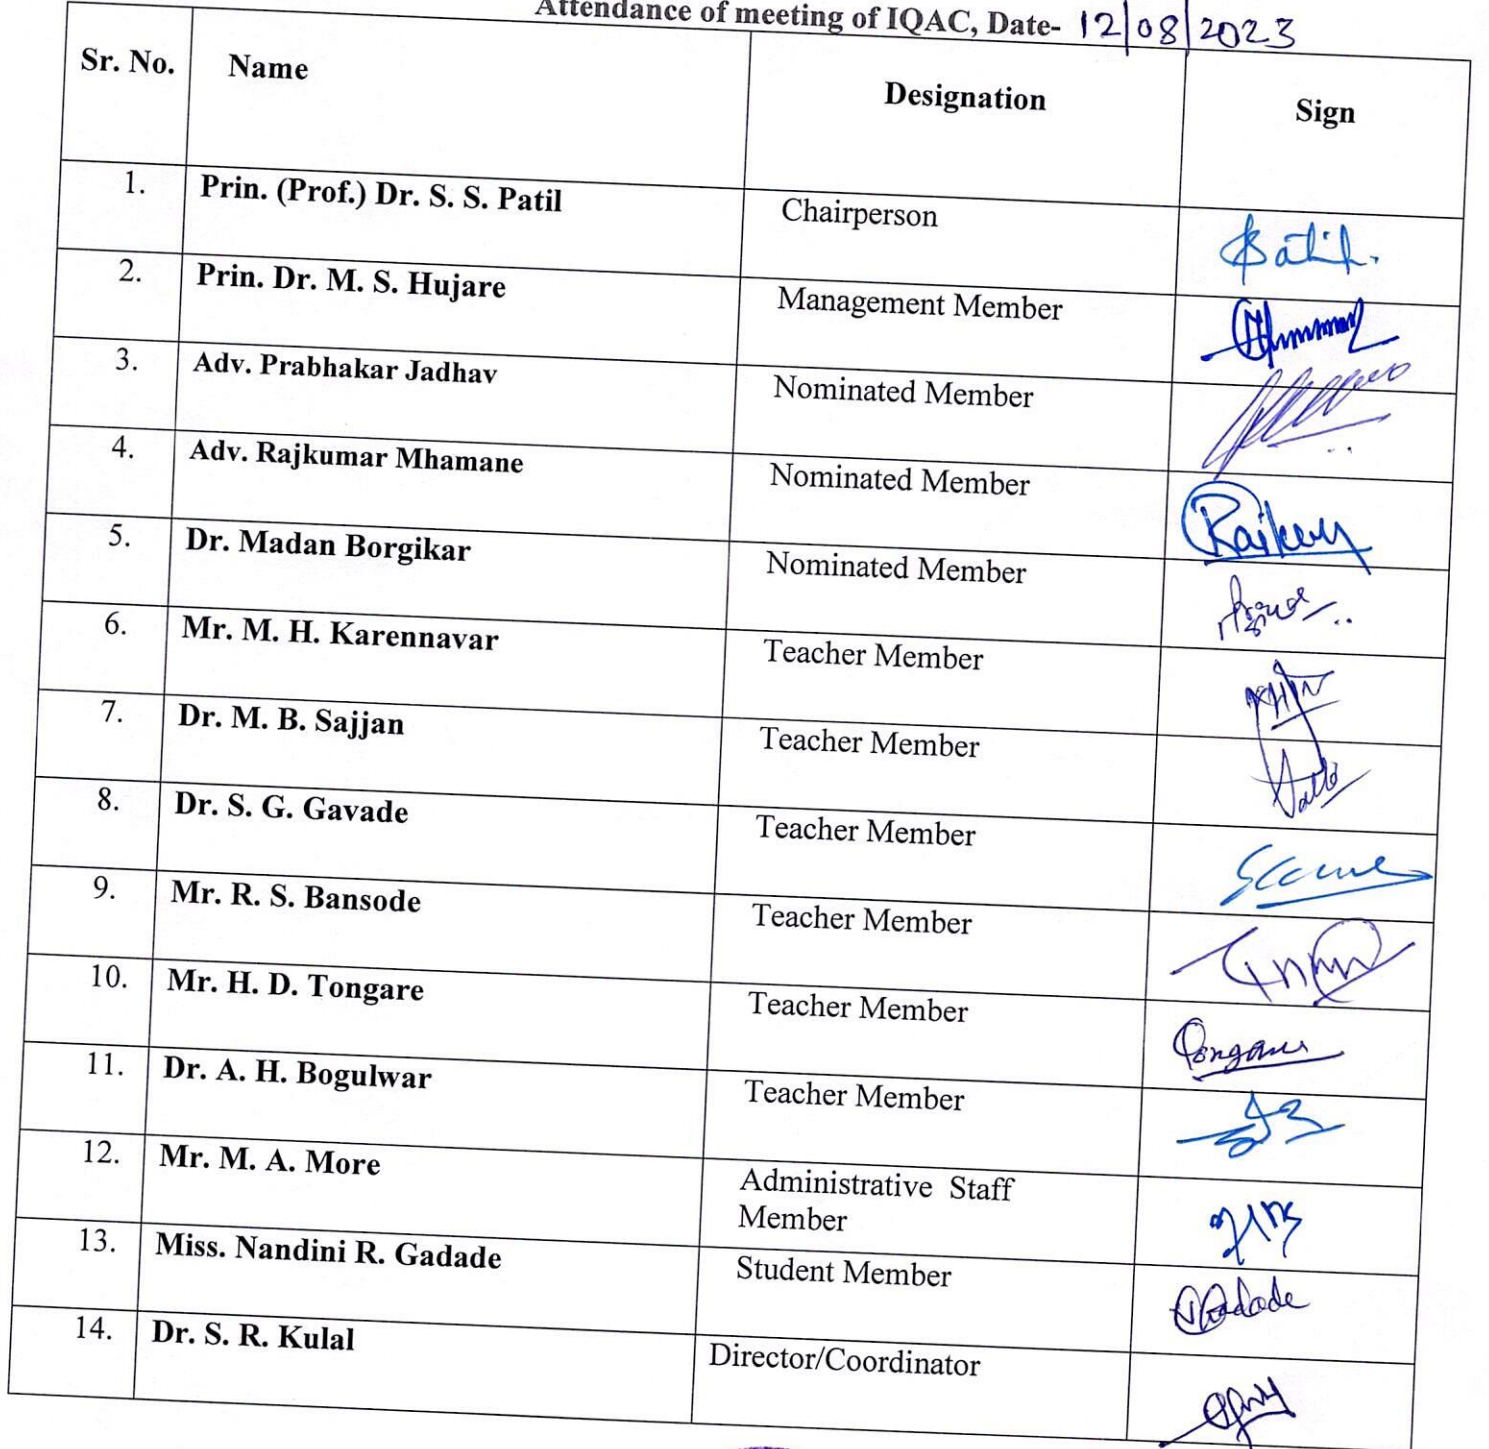 Attendance of meeting of IQAC, Date- 12/08/2023
Sr. No. Name Designation Sign
1. Prin. (Prof.) Dr. S. S. Patil Chairperson
2. Prin. Dr. M. S. Hujare Management Member
3. Adv. Prabhakar Jadhav Nominated Member
4. Adv. Rajkumar Mhamane Nominated Member
5. Dr. Madan Borgikar Nominated Member
6. Mr. M. H. Karennavar Teacher Member
7. Dr. M. B. Sajjan Teacher Member
8. Dr. S. G. Gavade Teacher Member
9. Mr. R. S. Bansode Teacher Member
10. Mr. H. D. Tongare Teacher Member
11. Dr. A. H. Bogulwar Teacher Member
12. Mr. M. A. More Administrative Staff
Member
13. Miss. Nandini R. Gadade Student Member
14. Dr. S. R. Kulal Director/Coordinator